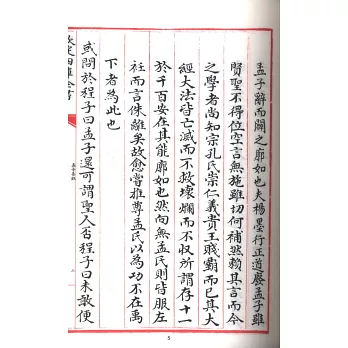 孟子辭而闢之廓如也夫楊墨行正道廢孟子雖
賢聖不得位空言無施雖切何補然賴其言而今
之學者尚知宗孔氏崇仁義貴王賤霸而已其大
經大法皆亡滅而不救壞爛而不收所謂存十一
於千百安在其能廓如也然向無孟氏則皆服左
衽而言侏離矣故愈嘗推尊孟氏以為功不在禹
下者為此也
或問於程子曰孟子還可謂聖人否程子曰未敢便
欽定四庫全書
5